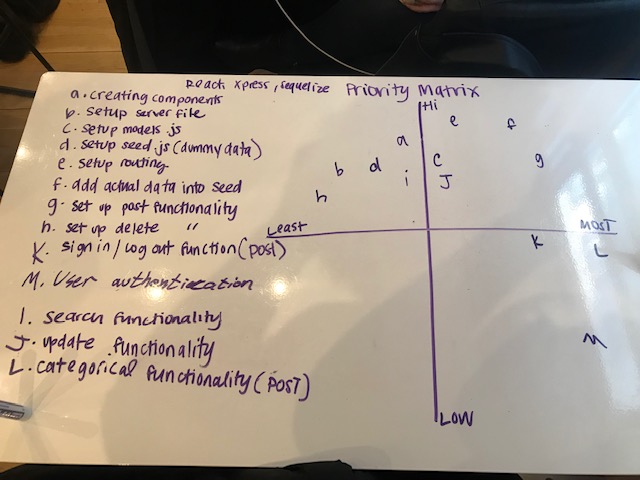 React, Xpress, Sequelize
Priority Matrix
a. creating components
b. setup server file
c. setup models js
d. setup seed.js (dummy data)
e. setup routing
f. add actual data into seed
g. set up post functionality
h. set up delete "
K. sign in / log out function (post)
M. User authentication
I. search functionality
J. update functionality
L. categorical functionality (POST)
Hi
e f
a
c g
b d i J
h
Least Most
K L
M
LOW